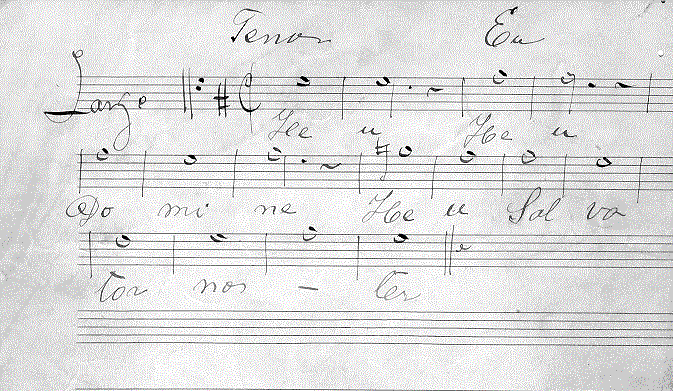 Tenor Eu
Largo
He u He u
Do mi ne He u Sal va
tor nos - ter